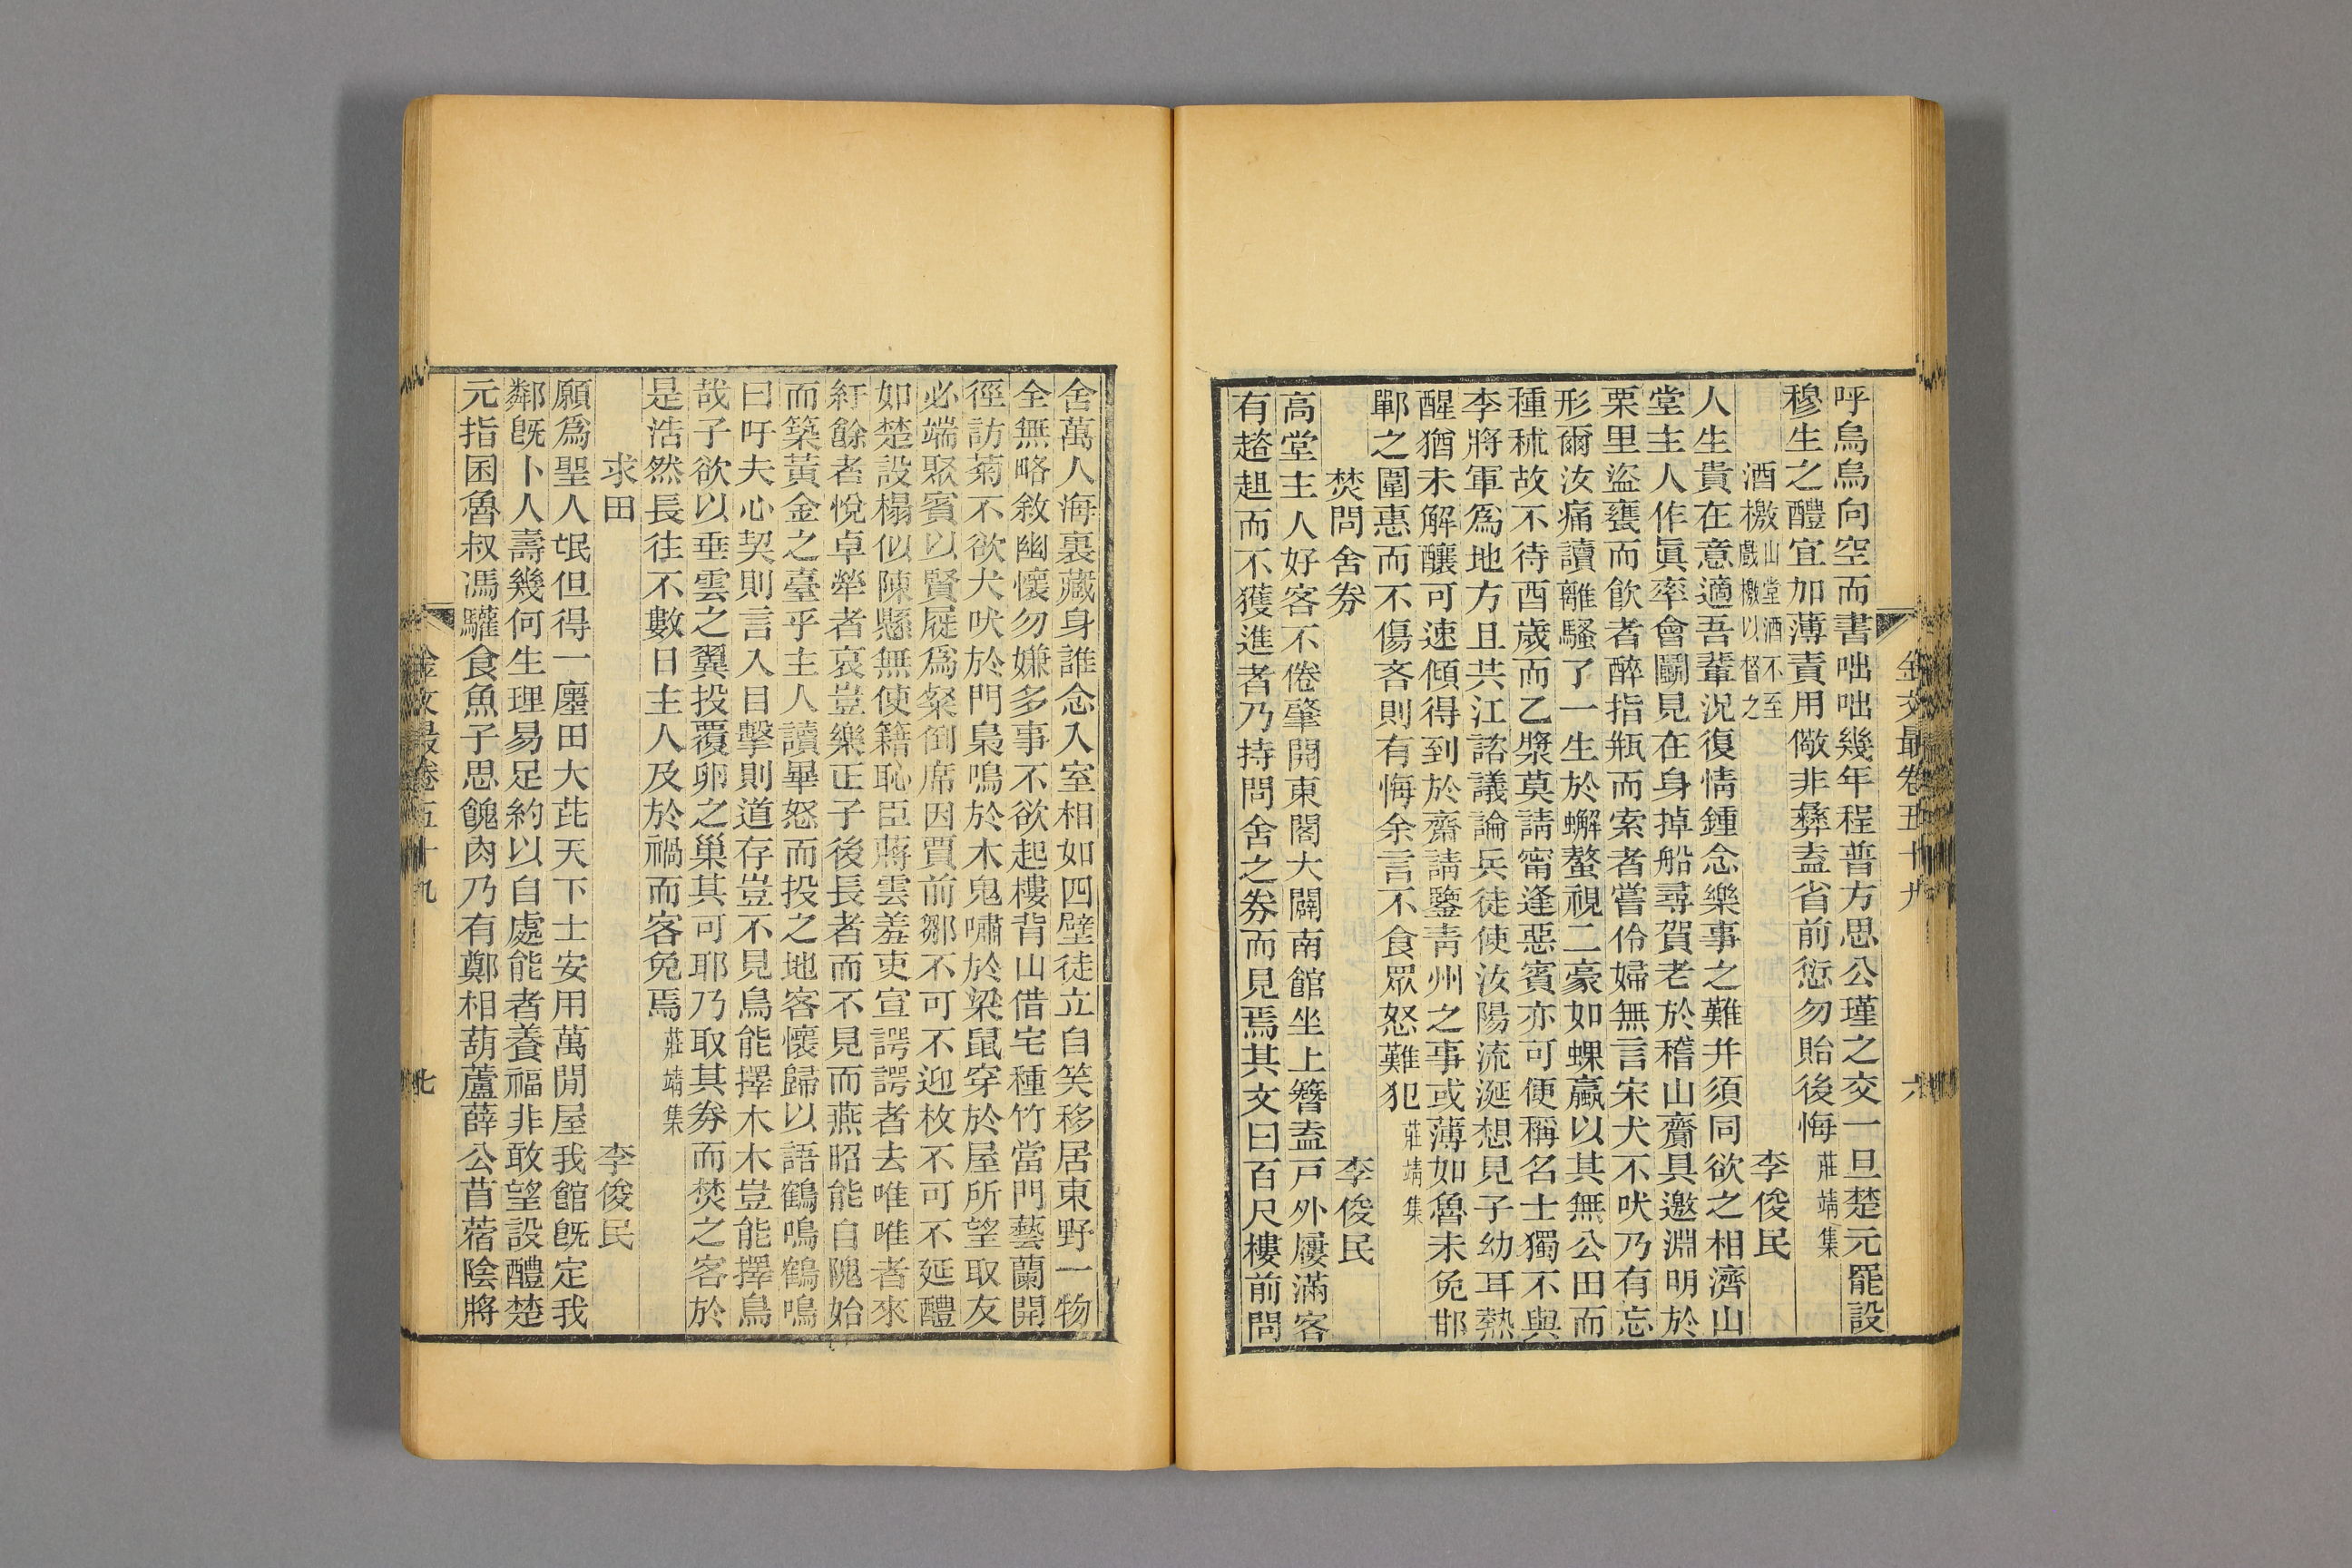 呼烏烏向空而書咄咄幾年程普方思公瑾之交一旦楚元罷設
穆生之醴宜加薄責用儆非彝盍省前愆勿貽後悔莊靖集
酒檄山堂酒不至戲檄以督之 李俊民
人生貴在意適吾輩況復情鍾念樂事之難并須同欲之相濟山
堂主人作眞率會鬭見在身掉船尋賀老於稽山齎具邀淵明於
栗里盜甕而飮者醉指瓶而索者嘗伶婦無言宋犬不吠乃有忘
形爾汝痛讀離騷了一生於蠏螯視二豪如蜾蠃以其無公田而
種秫故不待酉歲而乙漿莫請甯逢惡賓亦可便稱名士獨不與
李將軍爲地方且共江諮議論兵徒使汝陽流涎想見子幼耳熱
醒猶未解釀可速傾得到於齋請鑒靑州之事或薄如魯未免邯
鄲之圍惠而不傷吝則有悔余言不食眾怒難犯莊靖集
焚問舍券 李俊民
高堂主人好客不倦肇開東閣大闢南館坐上簪盍戸外屨滿客
有趦趄而不獲進者乃持問舍之券而見焉其文曰百尺樓前問
金文最卷五十九 六
舍萬人海裏藏身誰念入室相如四壁徒立自笑移居東野一物
全無略敘幽懷勿嫌多事不欲起樓背山借宅種竹當門藝蘭開
徑訪菊不欲犬吠於門梟鳴於木鬼嘯於梁鼠穿於屋所望取友
必端聚賓以賢屣爲粲倒席因賈前鄒不可不迎枚不可不延醴
如楚設榻似陳懸無使籍恥臣蔣雲羞吏宣諤諤者去唯唯者來
紆餘者悅卓犖者哀豈樂正子後長者而不見而燕昭能自隗始
而築黃金之臺乎主人讀畢怒而投之地客懷歸以語鶴鳴鶴鳴
曰吁夫心契則言入目擊則道存豈不見鳥能擇木木豈能擇鳥
哉子欲以垂雲之翼投覆卵之巢其可耶乃取其券而焚之客於
是浩然長往不數日主人及於禍而客免焉莊靖集
求田 李俊民
願爲聖人氓但得一廛田大芘天下士安用萬閒屋我館旣定我
鄰旣卜人壽幾何生理易足約以自處能者養福非敢望設醴楚
元指囷魯叔馮驩食魚子思餽肉乃有鄭相葫蘆薛公苜蓿陰將
金文最卷五十九 七